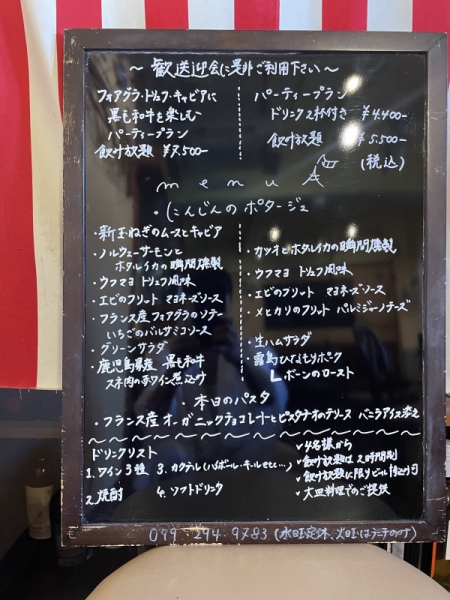 ～ 歓送迎会に是非ご利用下さい ～
フォアグラ・トリュフ・キャビアに
黒毛和牛を楽しむ
パーティープラン
飲み放題 ¥7.500-
パーティープラン
ドリンク2杯付き ¥4.400-
飲み放題 ¥5.500-
(税込)
menu
・にんじんのポタージュ
・新玉ねぎのムースとキャビア
・ノルウェーサーモンと
ホタルイカの瞬間燻製
・ウフマヨ トリュフ風味
・エビのフリット マヨネーズソース
・フランス産フォアグラのソテー
いちごのバルサミコソース
・グリーンサラダ
・鹿児島県産 黒毛和牛
スネ肉の赤ワイン煮込み
・カツオとホタルイカの瞬間燻製
・ウフマヨ トリュフ風味
・エビのフリット マヨネーズソース
・メヒカリのフリット パルミジャーノチーズ
・生ハムサラダ
・霧島ひびきもりポーク
Lボーンのロースト
・本日のパスタ
・フランス産オーガニックチョコレートとピスタチオのテリーヌ バニラアイス添え
ドリンクリスト
1. ワイン3種 3. カクテル(ハイボール・キールetc...)
2. 焼酎 4. ソフトドリンク
✓4名様から
✓飲み放題は2時間制
✓飲み放題に限りビール1杯付
✓大皿料理でのご提供
099-294-9783 (水曜定休、火曜はランチのみ)